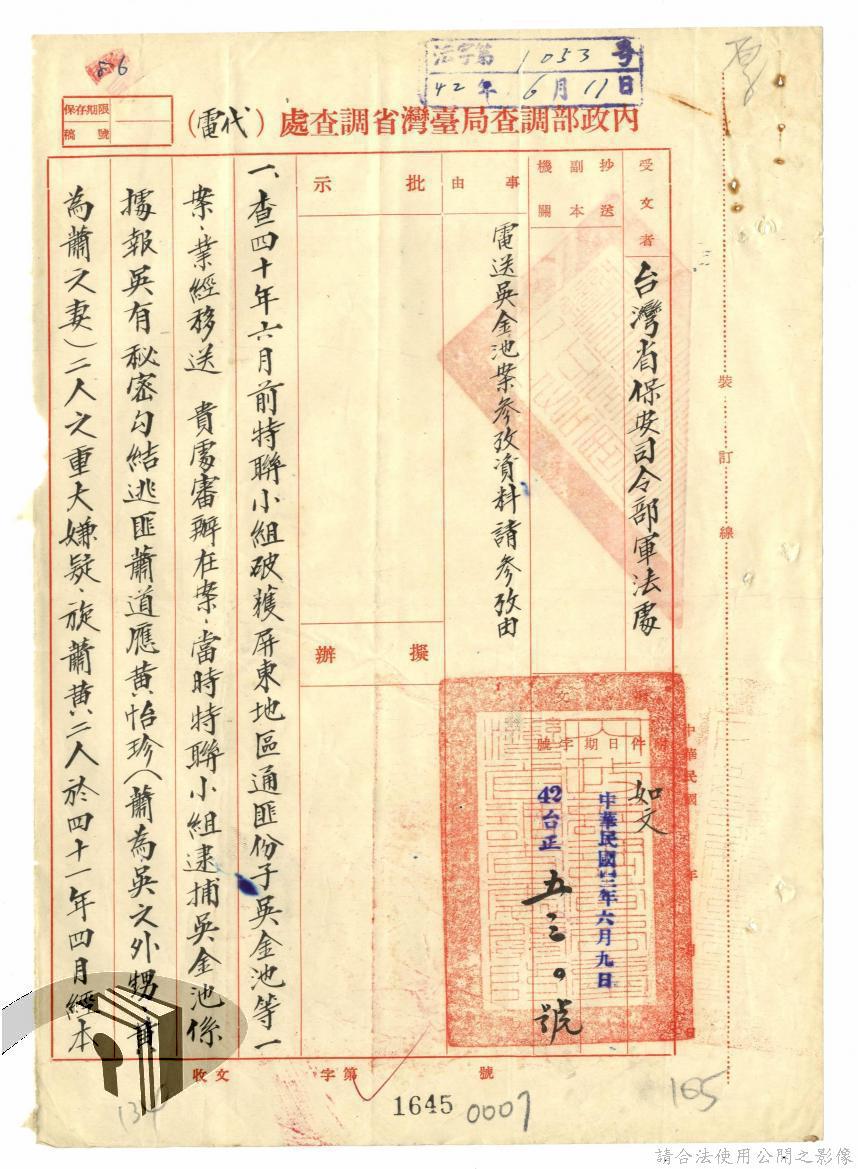 法字第1053号
42年6月11日
86
保存期限
稿號
內政部調查局臺灣省調查處（代電）
受文者
台灣省保安司令部軍法處
抄送副本機關
事由
電送吳金池案參攷資料請參攷由
批示
擬辦
附件
如文
日期
中華民國四二年六月九日
字號
42台正五三〇號
一、查四十年六月前特聯小組破獲屏東地區通匪份子吳金池等一
案、業經移送 貴處審辦在案、當時特聯小組逮捕吳金池係
據報吳有秘密勾結逃匪蕭道應黃怡珍（蕭為吳之外甥、黃
為蕭之妻）二人之重大嫌疑、旋蕭黃二人於四十一年四月經本
裝訂線
中華民國年月日
收文字第號
1645
0007
165
134
請合法使用公開之影像